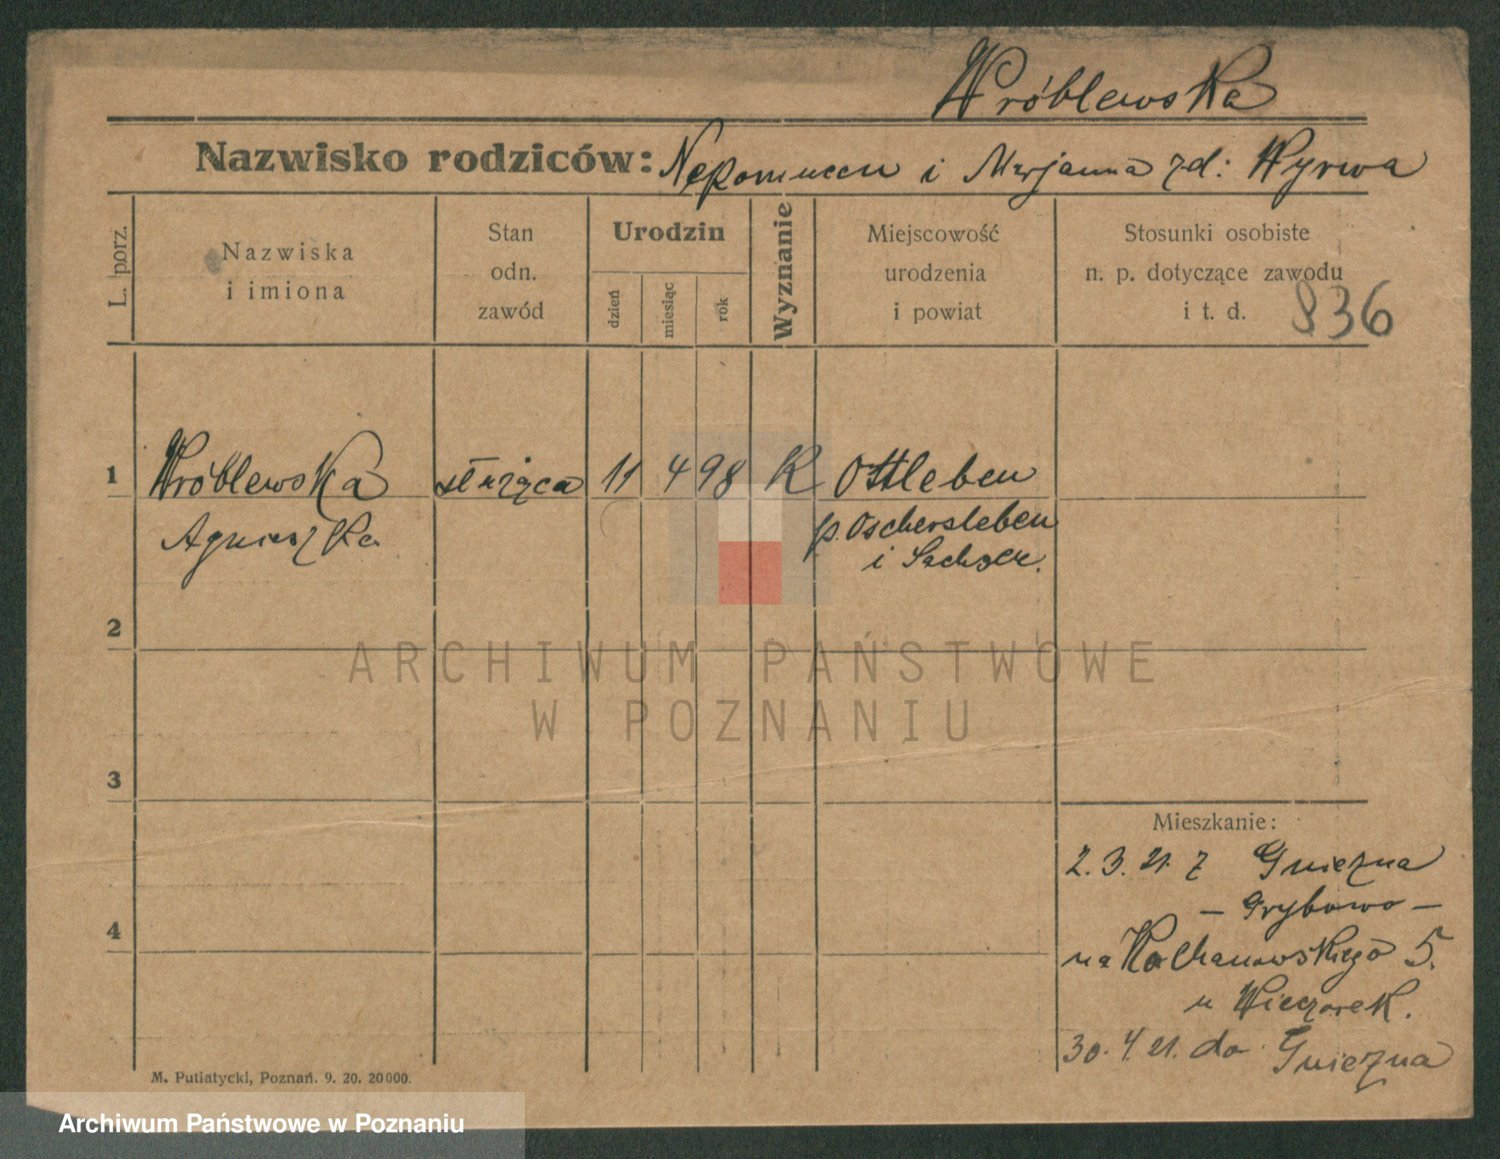 Wróblewska
Nazwisko rodziców: Nepomucen i Marjanna zd: Wyrwa
L. porz.
Nazwiska
i imiona
Stan
odn.
zawód
Urodzin
dzień
miesiąc
rok
Wyznanie
Miejscowość
urodzenia
i powiat
Stosunki osobiste
n. p. dotyczące zawodu
i t. d.
836
1 Wróblewska służąca 11 4 98 K Ottleben
Agnieszka p. Oschersleben
i Sachsen.
2
ARCHIWUM PAŃSTWOWE
W POZNANIU
3
Mieszkanie:
2. 3. 21. z Gniezna
— Grybowo —
4
na Kochanowskiego 5.
u Wieczorek.
30. 4 21. do Gniezna
M. Putiatycki, Poznań. 9. 20. 20000.
Archiwum Państwowe w Poznaniu